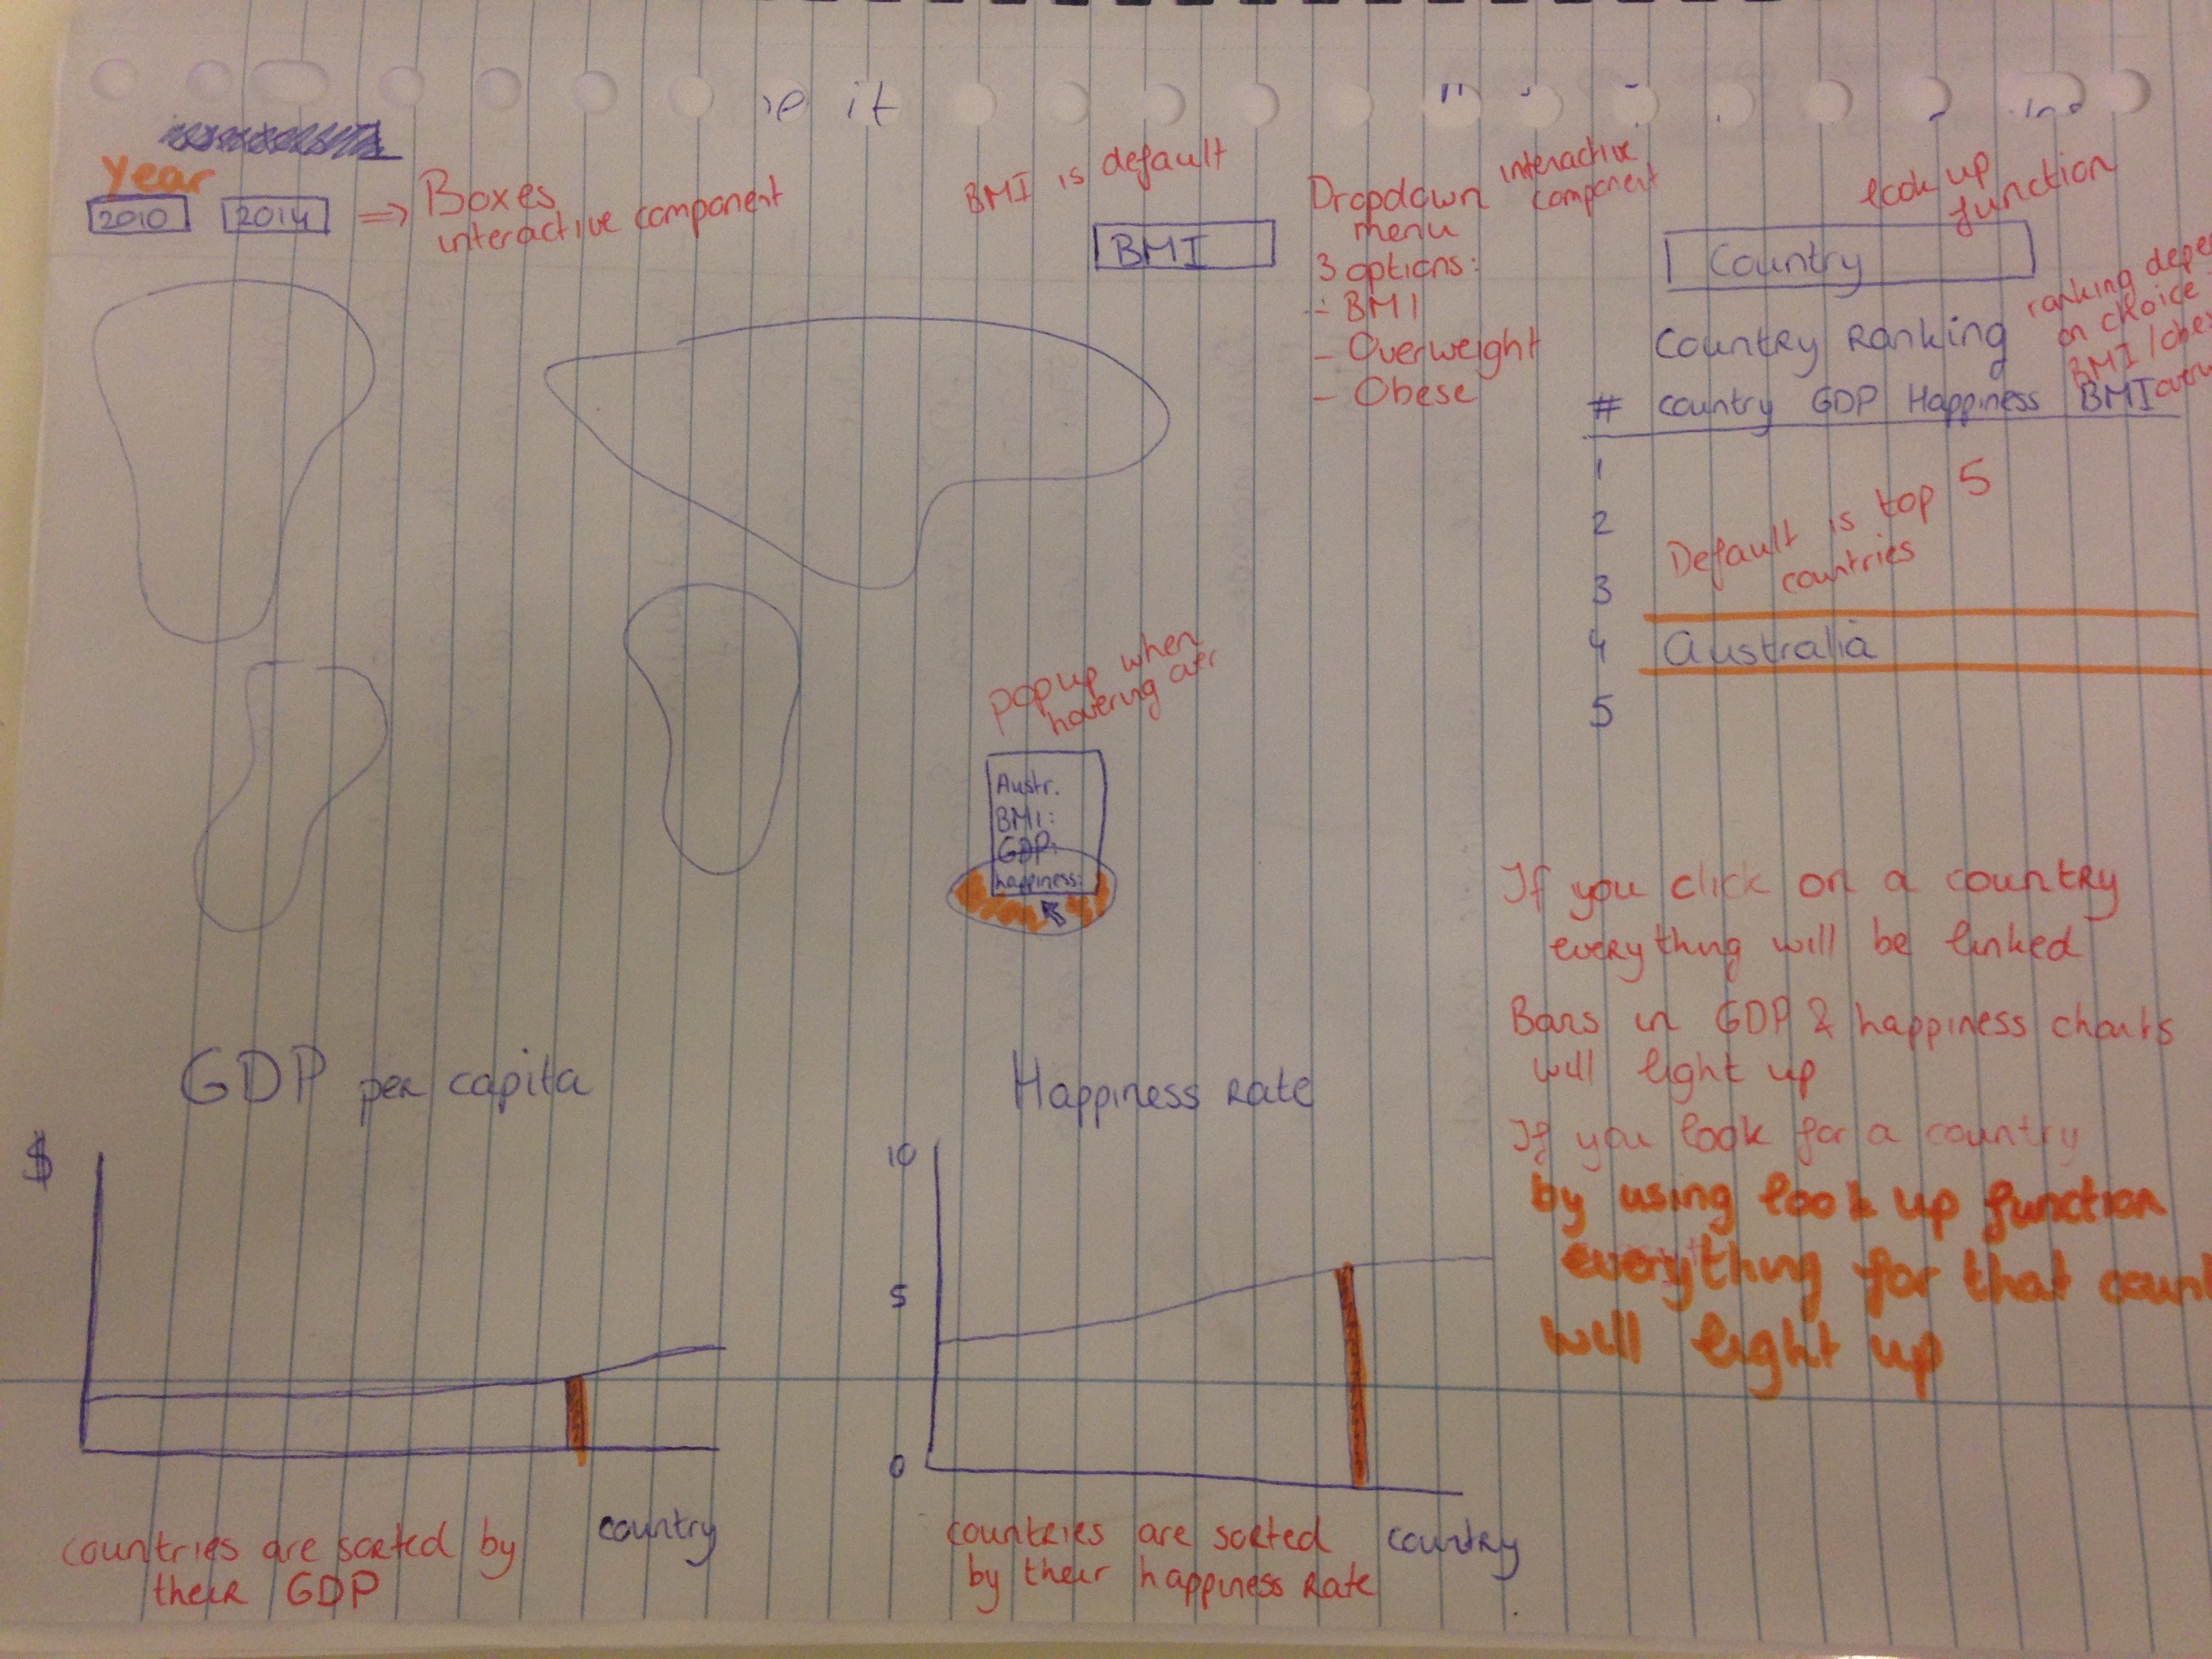 it
Year
2010
2014
=> Boxes
interactive component
BMI is default
BMI
Dropdown
menu
interactive
component
3 options:
- BMI
- Overweight
- Obese
look up
function
Country
Country Ranking
ranking
on choice
BMI /
# country GDP Happiness BMI
1
2
3
4 Australia
5
Default is top 5
countries
pop up when
hovering over
Austr.
BMI:
GDP:
happiness:
If you click on a country
everything will be linked
Bars in GDP & happiness charts
will light up
If you look for a country
by using look up function
everything for that
will light up
GDP per capita
$
country
countries are sorted by
their GDP
Happiness rate
10
5
0
country
countries are sorted
by their happiness rate